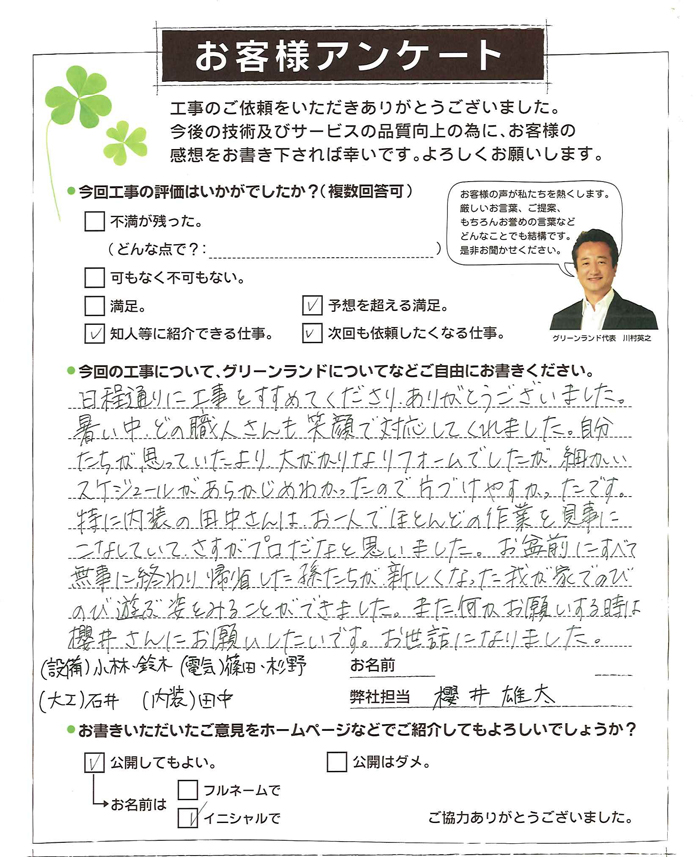 お客様アンケート
工事のご依頼をいただきありがとうございました。
今後の技術及びサービスの品質向上の為に、お客様の
感想をお書き下されば幸いです。よろしくお願いします。
●今回工事の評価はいかがでしたか？（複数回答可）
不満が残った。
（どんな点で？：　）
可もなく不可もない。
満足。
予想を超える満足。
知人等に紹介できる仕事。
次回も依頼したくなる仕事。
お客様の声が私たちを熱くします。
厳しいお言葉、ご提案、
もちろんお誉めの言葉など
どんなことでも結構です。
是非お聞かせください。
グリーンランド代表　川村英之
●今回の工事について、グリーンランドについてなどご自由にお書きください。
日程通りに工事をすすめてくださり、ありがとうございました。
暑い中、どの職人さんも笑顔で対応してくれました。自分
たちが思っていたより、大がかりなリフォームでしたが、細かい
スケジュールがあらかじめわかったので片づけやすかったです。
特に内装の田中さんは、お一人でほとんどの作業を見事に
こなしていて、さすがプロだなと思いました。お盆前にすべて
無事に終わり、帰省した孫たちが新しくなった我が家でのび
のび遊ぶ姿をみることができました。また何かお願いする時は
櫻井さんにお願いしたいです。お世話になりました。
(設備)小林・鈴木 (電気)篠田・杉野
(大工)石井　(内装)田中
お名前
弊社担当　櫻井雄太
●お書きいただいたご意見をホームページなどでご紹介してもよろしいでしょうか？
公開してもよい。
公開はダメ。
お名前は
フルネームで
イニシャルで
ご協力ありがとうございました。